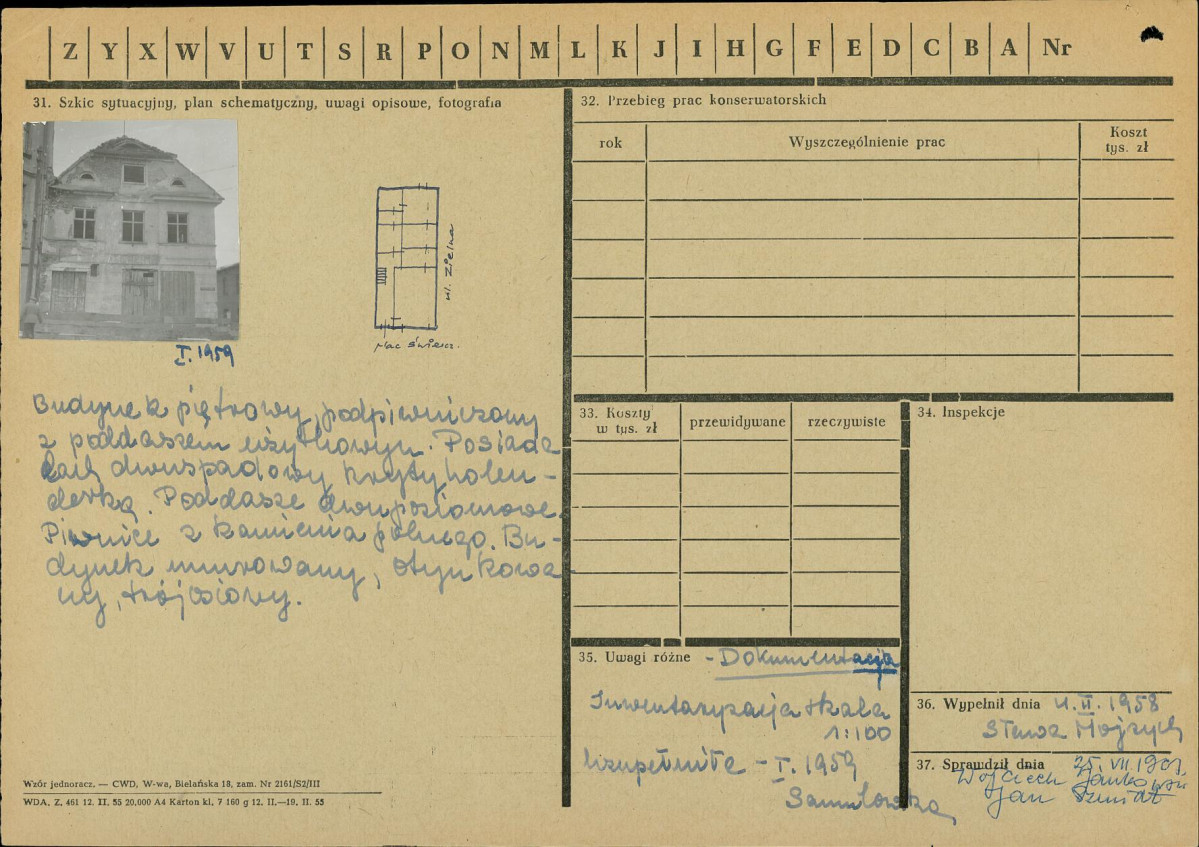 Z Y X W V U T S R P O N M L K J I H G F E D C B A Nr
31. Szkic sytuacyjny, plan schematyczny, uwagi opisowe, fotografia
I. 1959
ul. Zielna
Plac Świercz.
Budynek piętrowy, podpiwniczony
z poddaszem użytkowym. Posiada
dach dwuspadowy kryty holen-
derką. Poddasze dwupoziomowe.
Piwnice z kamienia polnego. Bu-
dynek murowany, otynkowa
ny, trójosiowy.
Wzór jednoracz. — CWD, W-wa, Bielańska 18, zam. Nr 2161/S2/III
WDA, Z. 461 12. II. 55 20,000 A4 Karton kl. 7 160 g 12. II.—19. II. 55
32. Przebieg prac konserwatorskich
rok
Wyszczególnienie prac
Koszt
tys. zł
33. Koszty
w tys. zł
przewidywane
rzeczywiste
34. Inspekcje
35. Uwagi różne - Dokumentacja
Inwentaryzacja skala
1:100
Uzupełniła - I. 1959
Samulowska
36. Wypełnił dnia 4. II. 1958
37. Sprawdził dnia 25. VII
Wojciech Jankowski
Jan